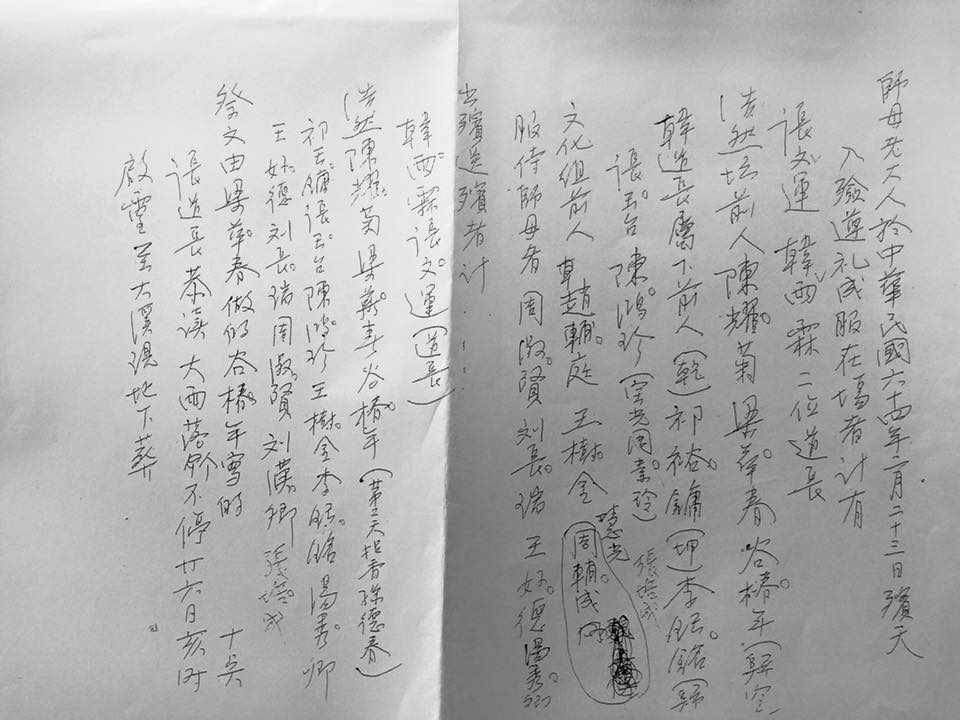 師母老大人於中華民國六十四年二月二十三日殯天
入殮遵礼成服在場者計有
張文運 韓雨霖 二位道長
浩然坛前人陳耀菊 梁華春 谷椿年(歸空)
韓道長屬下前人(乾)祁裕鏞(坤)李鈺銘(歸
張玉台 陳鴻珍(宝光周素玲)
張培成
文化組前人 趙輔庭 王樹金
慧光
周輔成
服侍師母者 周淑賢 刘長瑞 王好德 湯秀卿
出殯送殯者計
韓雨霖 張文運(道長)
浩然陳耀菊 梁華春 谷椿年(第二天担香孫德春)
祁玉鏞 張玉台 陳鴻珍 王樹金 李鈺銘 湯秀卿
王好德 刘長瑞 周淑賢 刘漢卿 張培成
祭文由梁華春做的谷椿年寫的 十吳
張道長恭读 大雨落的不停 廿六日亥时
啟靈至大溪現地下葬